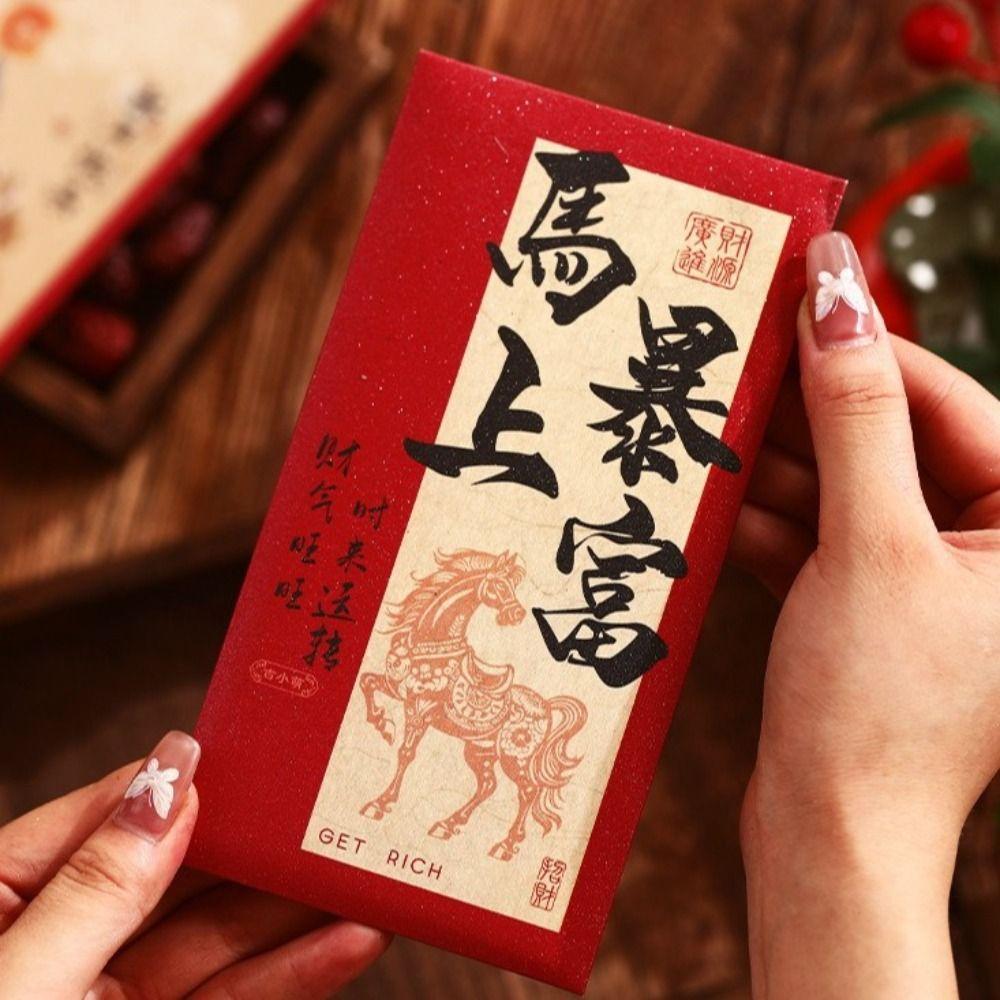 馬上
暴富
財源
廣進
财气旺旺
时来运转
古小萌
GET RICH
招財